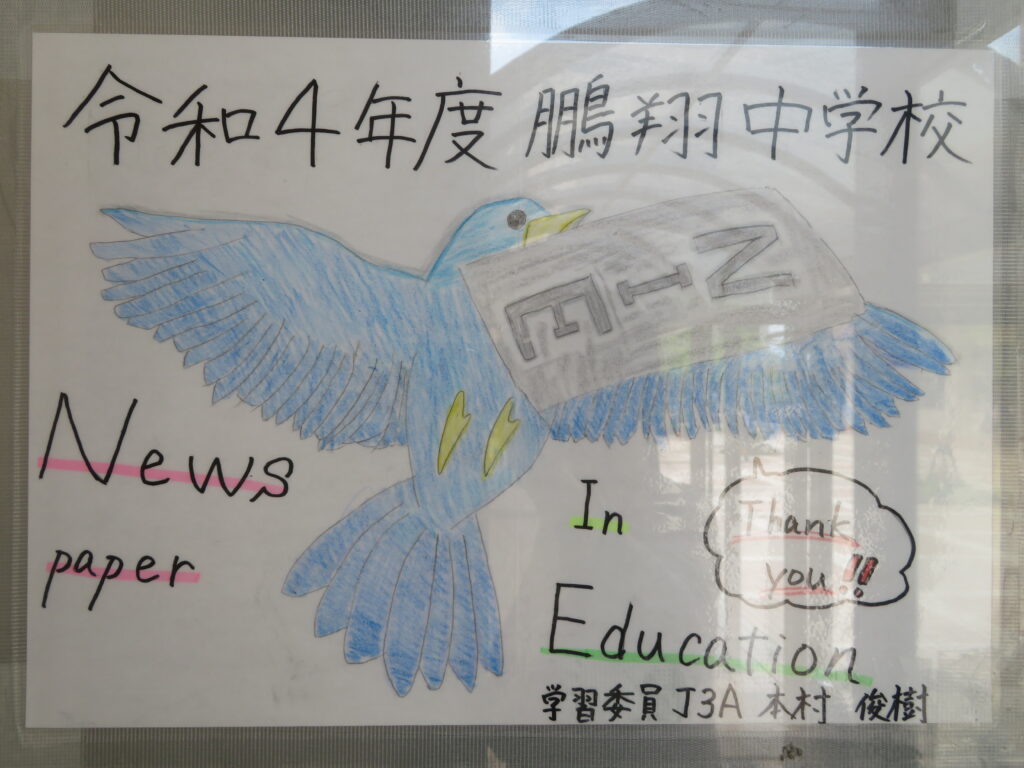 令和4年度 鵬翔中学校
NIE
News
paper
In
Education
Thank
you!!
学習委員 J3A 本村 俊樹